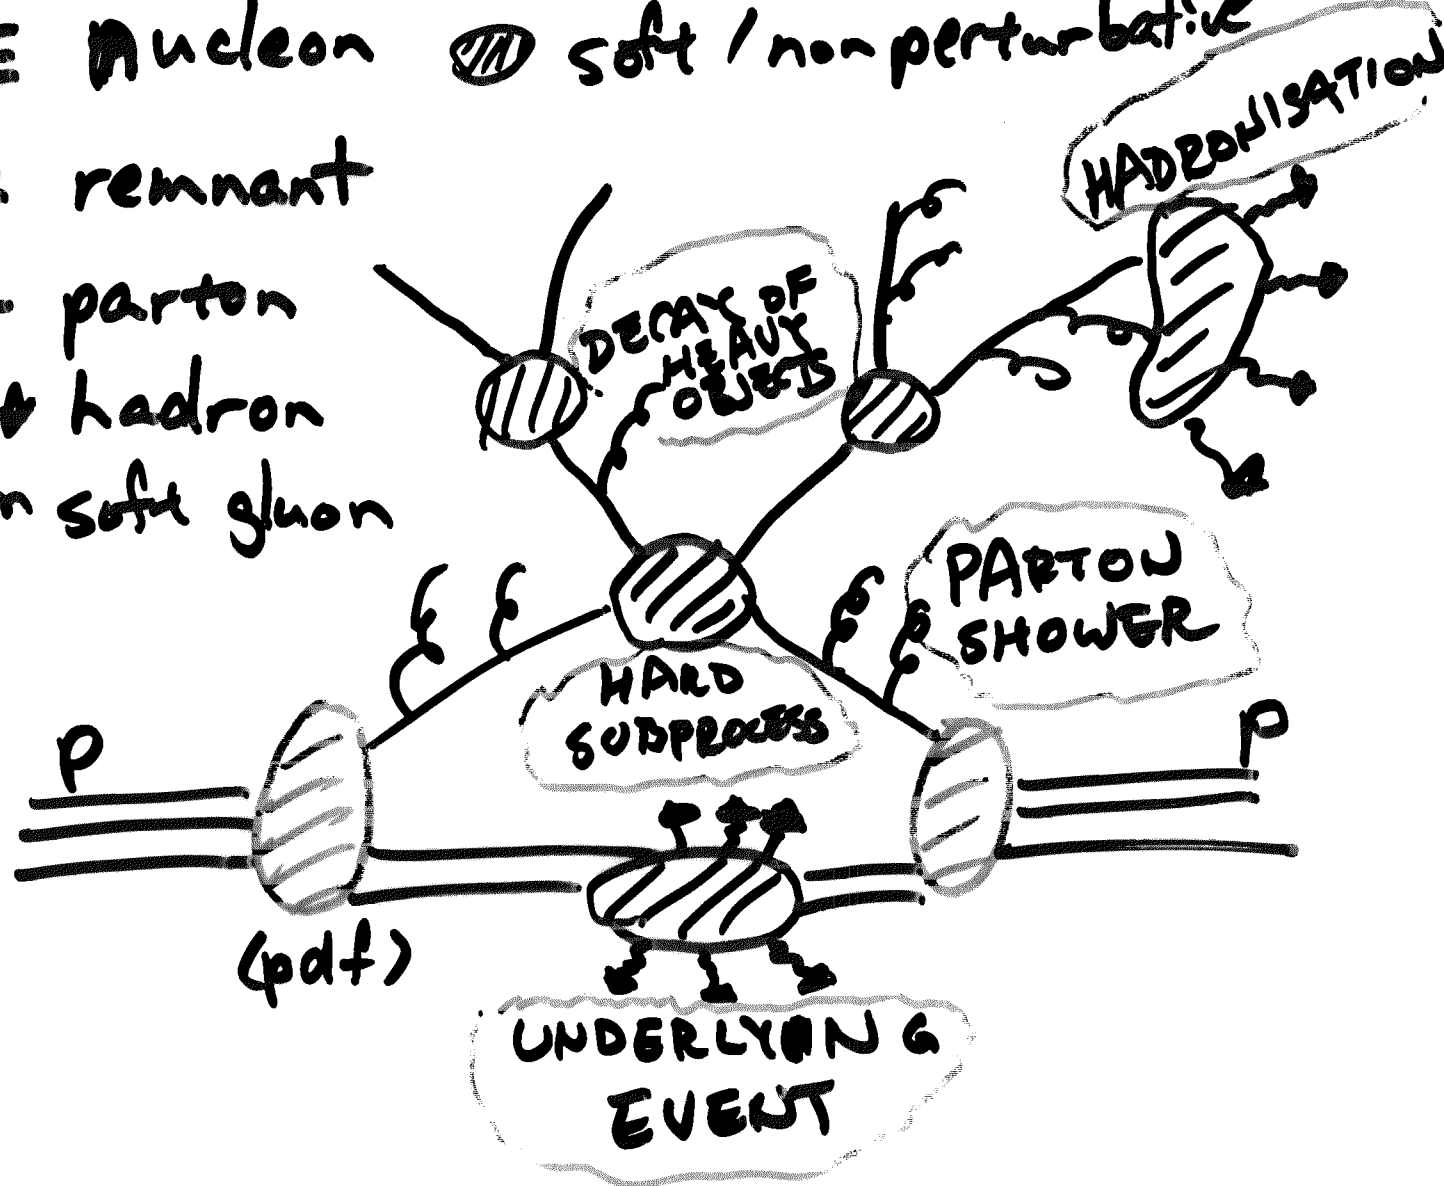 nucleon soft / nonperturbative
remnant
parton
hadron
soft gluon
HADRONISATION
DECAY OF
HEAVY
OBJECTS
PARTON
SHOWER
HARD
SUBPROCESS
P
P
(pdf)
UNDERLYING
EVENT